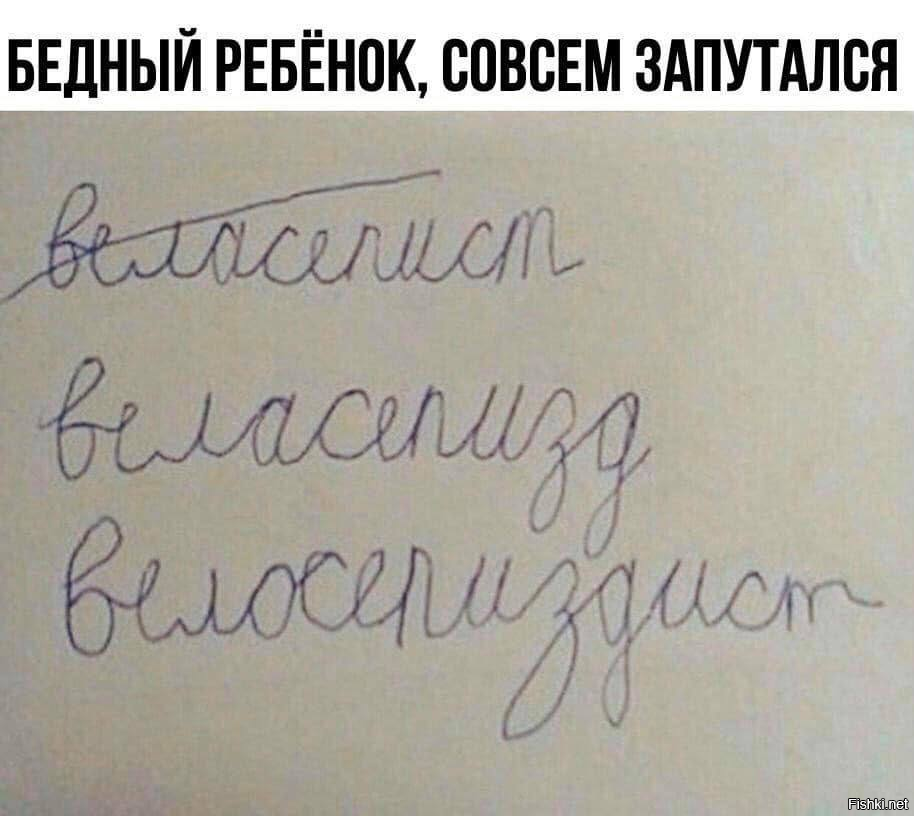 БЕДНЫЙ РЕБЁНОК, СОВСЕМ ЗАПУТАЛСЯ
веласепист
веласепизд
велосепиздист
Fishki.net